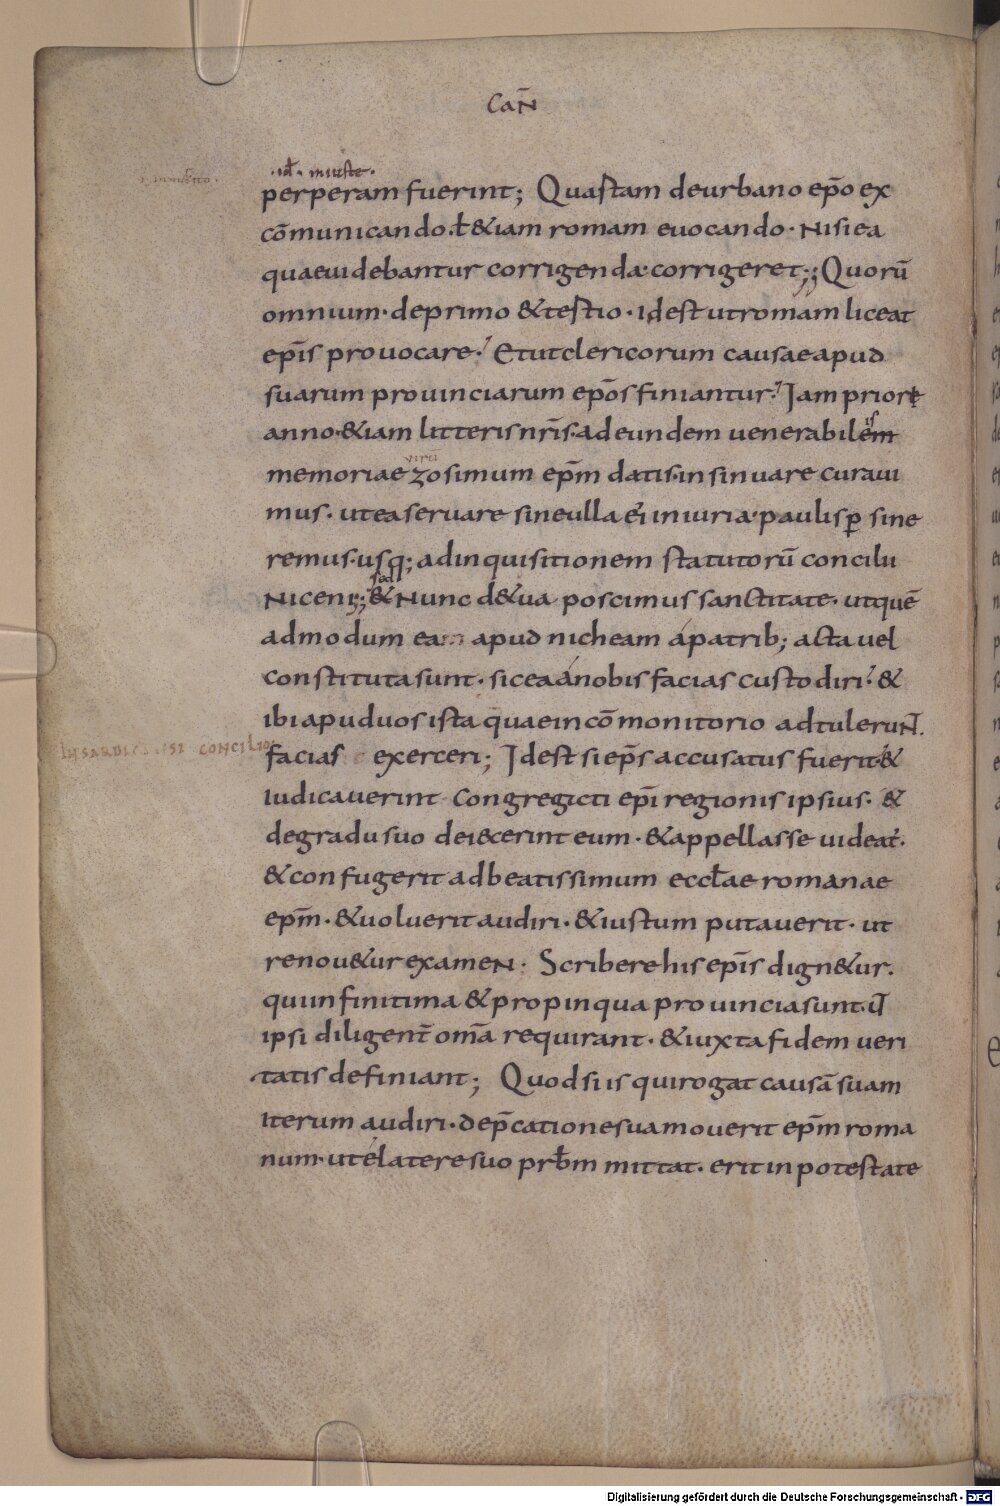 CAN̄
·id· iniuste·
perperam fuerint; Quaſtam deurbano ep̄o ex
cōmunicando·ł &iam romam euocando· Niſiea
quaeuidebantur corrigenda corrigeret; Quorū
omnium· deprimo &tertio· Ideſt utromam liceat
ep̄is prouocare· Etutclericorum cauſaeapud
ſuarum prouinciarum ep̄os finiantur· Iam priore
anno·&iam litteris nr̄is·adeundem uenerabilem
is
uiri
memoriae zosimum ep̄m datis·inſinuare curaui
mus· uteaſeruare ſineulla ei iniuria pauliſꝑ ſine
remus·uſq; adinquiſitionem ſtatutorū concilii
sed
Niceni; & Nunc d&ua poſcimuſ ſanctitate· utquē
admodum ea apud nicheam apatrib; acta uel
conſtitutaſunt· ſiceaanobiſ faciaſ cuſtodiri· &
ibi apuduoſ iſta quaeincōmonitorio adtulerun̄.
IN SARDICENSI CONCILIO
faciaſ exerceri; Ideſt ſiep̄s accuſatuſ fuerit·&
Iudicauerint congregati ep̄i regioniſ ipſiuſ· &
degraduſuo deiecerint eum· &appellaſſe uideat̄·
&confugerit adbeatiſſimum eccłae romanae
ep̄m· &uoluerit audiri· &iuſtum putauerit· ut
renou&ur examen· Scriberehiſ ep̄is dign&ur.
quiinfinitima &propinqua prouinciaſunt· ut̄
ipſi diligent̄ om̄a requirant· &iuxtafidem ueri
tatiſ definiant; Quodſi iſ quirogat cauſā ſuam
Iterum audiri· dep̄cationeſuamouerit ep̄m roma
num·utelatereſuo prb̄m mittat· erit inpoteſtate
Digitalisierung gefördert durch die Deutsche Forschungsgemeinschaft - DFG